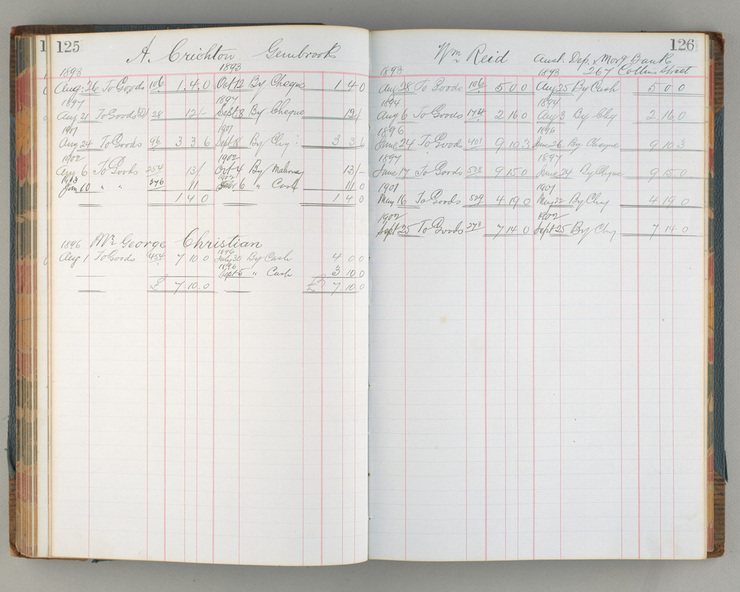 125
A. Crichton Gembrook
1893 1893
Aug 26 To Goods 106 1.4.0 Oct 12 By Cheque 1 4 0
1897 1897
Aug 21 To Goods 28 12/- Sept 8 By Cheque 12/-
1901 1901
Aug 24 To Goods 96 3 3 6 Sept 18 By Chq 3 3 6
1902 1902
Aug 6 To Goods 254 13/- Oct 4 By 13/-
1903
Jan 10 " " 276 11 6 " Cash 11.0
1 4 0 1 4 0
1896 Mr George Christian
1896
Aug 1 To Goods 454 7 10 0 July 30 By Cash 4 0 0
1896
Sept 5 " Cash 3 10.0
£ 7.10.0 £ 7 10.0
126
Wm Reid Aust. Dep. & Mort Bank
267 Collins Street
1893 1893
Aug 28 To Goods 106 5 0 0 Aug 25 By Cash 5 0 0
1894 1894
Aug 6 To Goods 174 2 16 0 Aug 3 By Chq 2.16.0
1896 1896
June 24 To Goods 401 9.10.3 June 26 By Cheque 9.10.3
1897 1897
June 17 To Goods 9 15 0 June 24 By Cheque 9.15.0
1901 1901
May 16 To Goods 529 4.19.0 May 22 By Chq 4.19.0
1902 1902
Sept 25 To Goods 7 14.0 Sept 25 By Chq 7 14.0